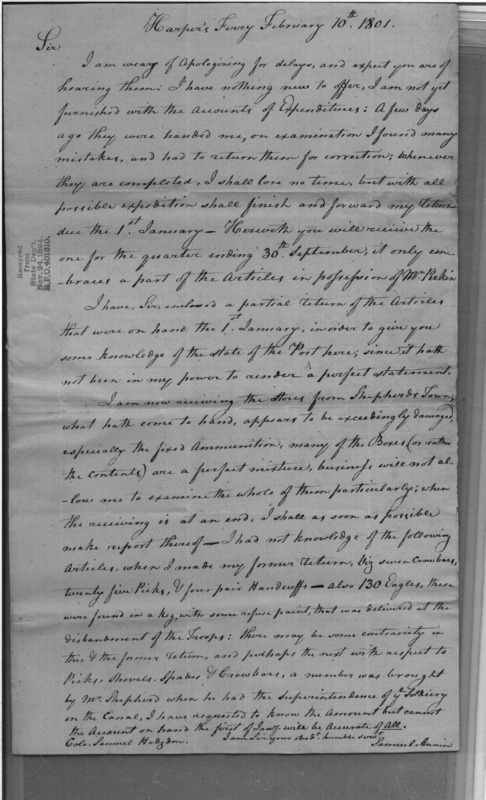 Harper's Ferry February 10th. 1801.
Sir
I am weary of Apologizing for delays, and expect you are of
hearing them: I have nothing new to offer, I am not yet
furnished with the Accounts of Expenditures: A few days
ago they were handed me, on examination I found many
mistakes, and had to return them for correction; whenever
they are completed, I shall lose no time, but with all
possible expedition shall finish and forward my Return
due the 1st. January — Herewith you will receive the
one for the quarter ending 30th September, it only em
-braces a part of the Articles in possession of Mr Perkin
I have, Sir, enclosed a partial return of the Articles
that were on hand the 1st. January, in order to give you
some knowledge of the state of the Post here, since it hath
not been in my power to render a perfect statement.
I am now receiving the Stores from Shepherds Town,
what hath come to hand, appears to be exceedingly damaged,
especially the fixed Ammunition, many of the Boxes (or rather
the contents) are a perfect mixture, business will not al
-low me to examine the whole of them particularly; when
the receiving is at an end, I shall as soon as possible
make report thereof — I had not knowledge of the following
Articles, when I made my former return, Viz seven Crowbars,
twenty five Picks, & four pair Handcuffs — also 130 Eagles, these
were found in a keg, with some refuse paint, that was delivered at the
disbandment of the Troops: there may be some contrariety in
this & the former return, and perhaps the next with respect to
Picks, Shovels, Spades & Crowbars, a number was brought
by Mr. Shepherd when he had the superintendence of ye Soldiery
on the Canal, I have requested to know the Amount but cannot
the Account on hand the first of Jany. will be Accurate of All.
I am Sir your obdt. humble servt.
Colo. Samuel Hodgdon.
Samuel Annin
Received
from
State Dep't.
Nov. 24, 1894.
R.P.O. 401310.